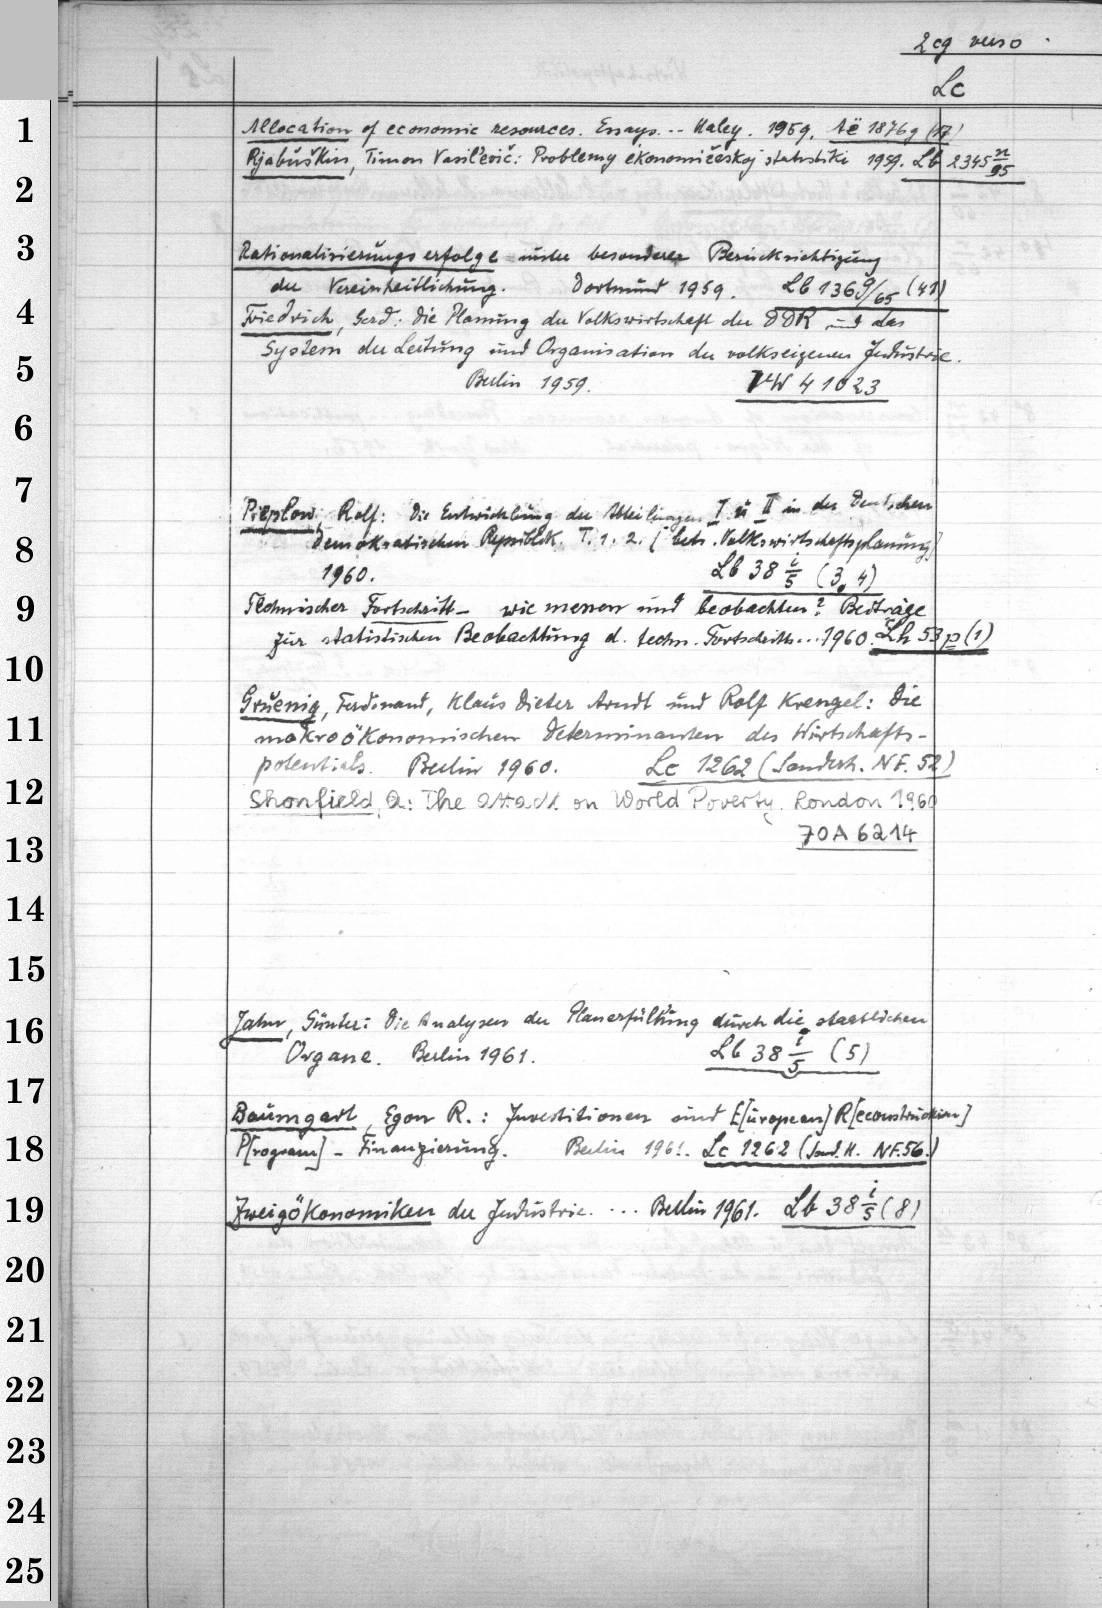 2cg verso
Lc
1
Allocation of economic resources. Essays... Haley. 1959. Aë 1876g (17)
Rjabuškin, Timon Vasil'evič: Problemy ėkonomičeskoj statistiki 1959. Lb 2345 n/95
2
3
Rationalisierungserfolge unter besonderer Berücksichtigung
der Vereinheitlichung. Dortmund 1959. Lb 136 g/65 (41)
4
Friedrich, Gerd: Die Planung der Volkswirtschaft der DDR und das
System der Leitung und Organisation der volkseigenen Industrie.
5
Berlin 1959. 41023
6
7
Pieplow, Rolf: Die Entwicklung der Abteilungen I u II in der Deutschen
Demokratischen Republik. T. 1. 2. [betr. Volkswirtschaftsplanung]
8
1960. Lb 38 i/5 (3. 4)
9
Technischer Fortschritt – wie messen und beobachten? Beiträge
zur statistischen Beobachtung d. techn. Fortschritts... 1960. Lh 53 p (1)
10
Gruenig, Ferdinand, Klaus Dieter Arndt und Rolf Krengel: Die
11
makroökonomischen Determinanten des Wirtschafts-
potentials. Berlin 1960. Lc 1262 (Sonderh. NF. 52)
12
Shonfield, A: The attack on World Poverty. London 1960
70A6214
13
14
15
Jahn, Günter: Die Analysen der Planerfüllung durch die staatlichen
16
Organe. Berlin 1961. Lb 38 i/5 (5)
17
Baumgart, Egon R.: Investitionen und E[uropean] R[econstruction]
P[rogram] – Finanzierung. Berlin 1961. Lc 1262 (Sond. H. NF. 56.)
18
19
Zweigökonomiken der Industrie. ... Berlin 1961. Lb 38 i/5 (8)
20
21
22
23
24
25